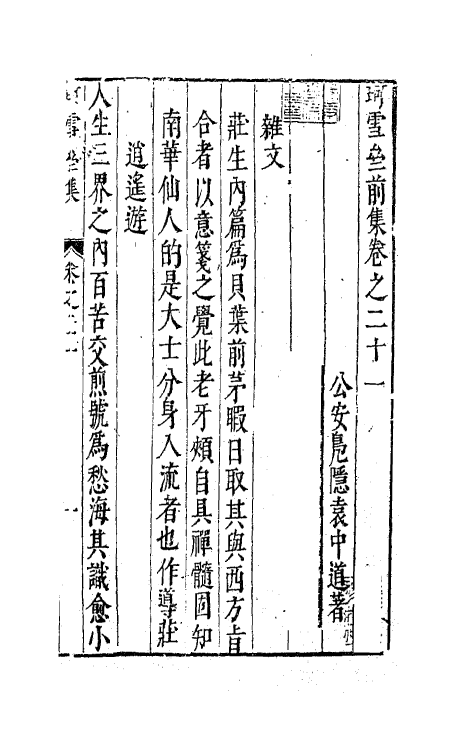 珂雪齋前集卷之二十一
公安鳧隱袁中道著
雜文
莊生內篇爲貝葉前茅暇日取其與西方旨
合者以意箋之覺此老牙頰自具禪髓固知
南華仙人的是大士分身入流者也作導莊
逍遙遊
人生三界之內百苦交煎號爲愁海其識愈小
珂雪齋集
卷之二十一
一